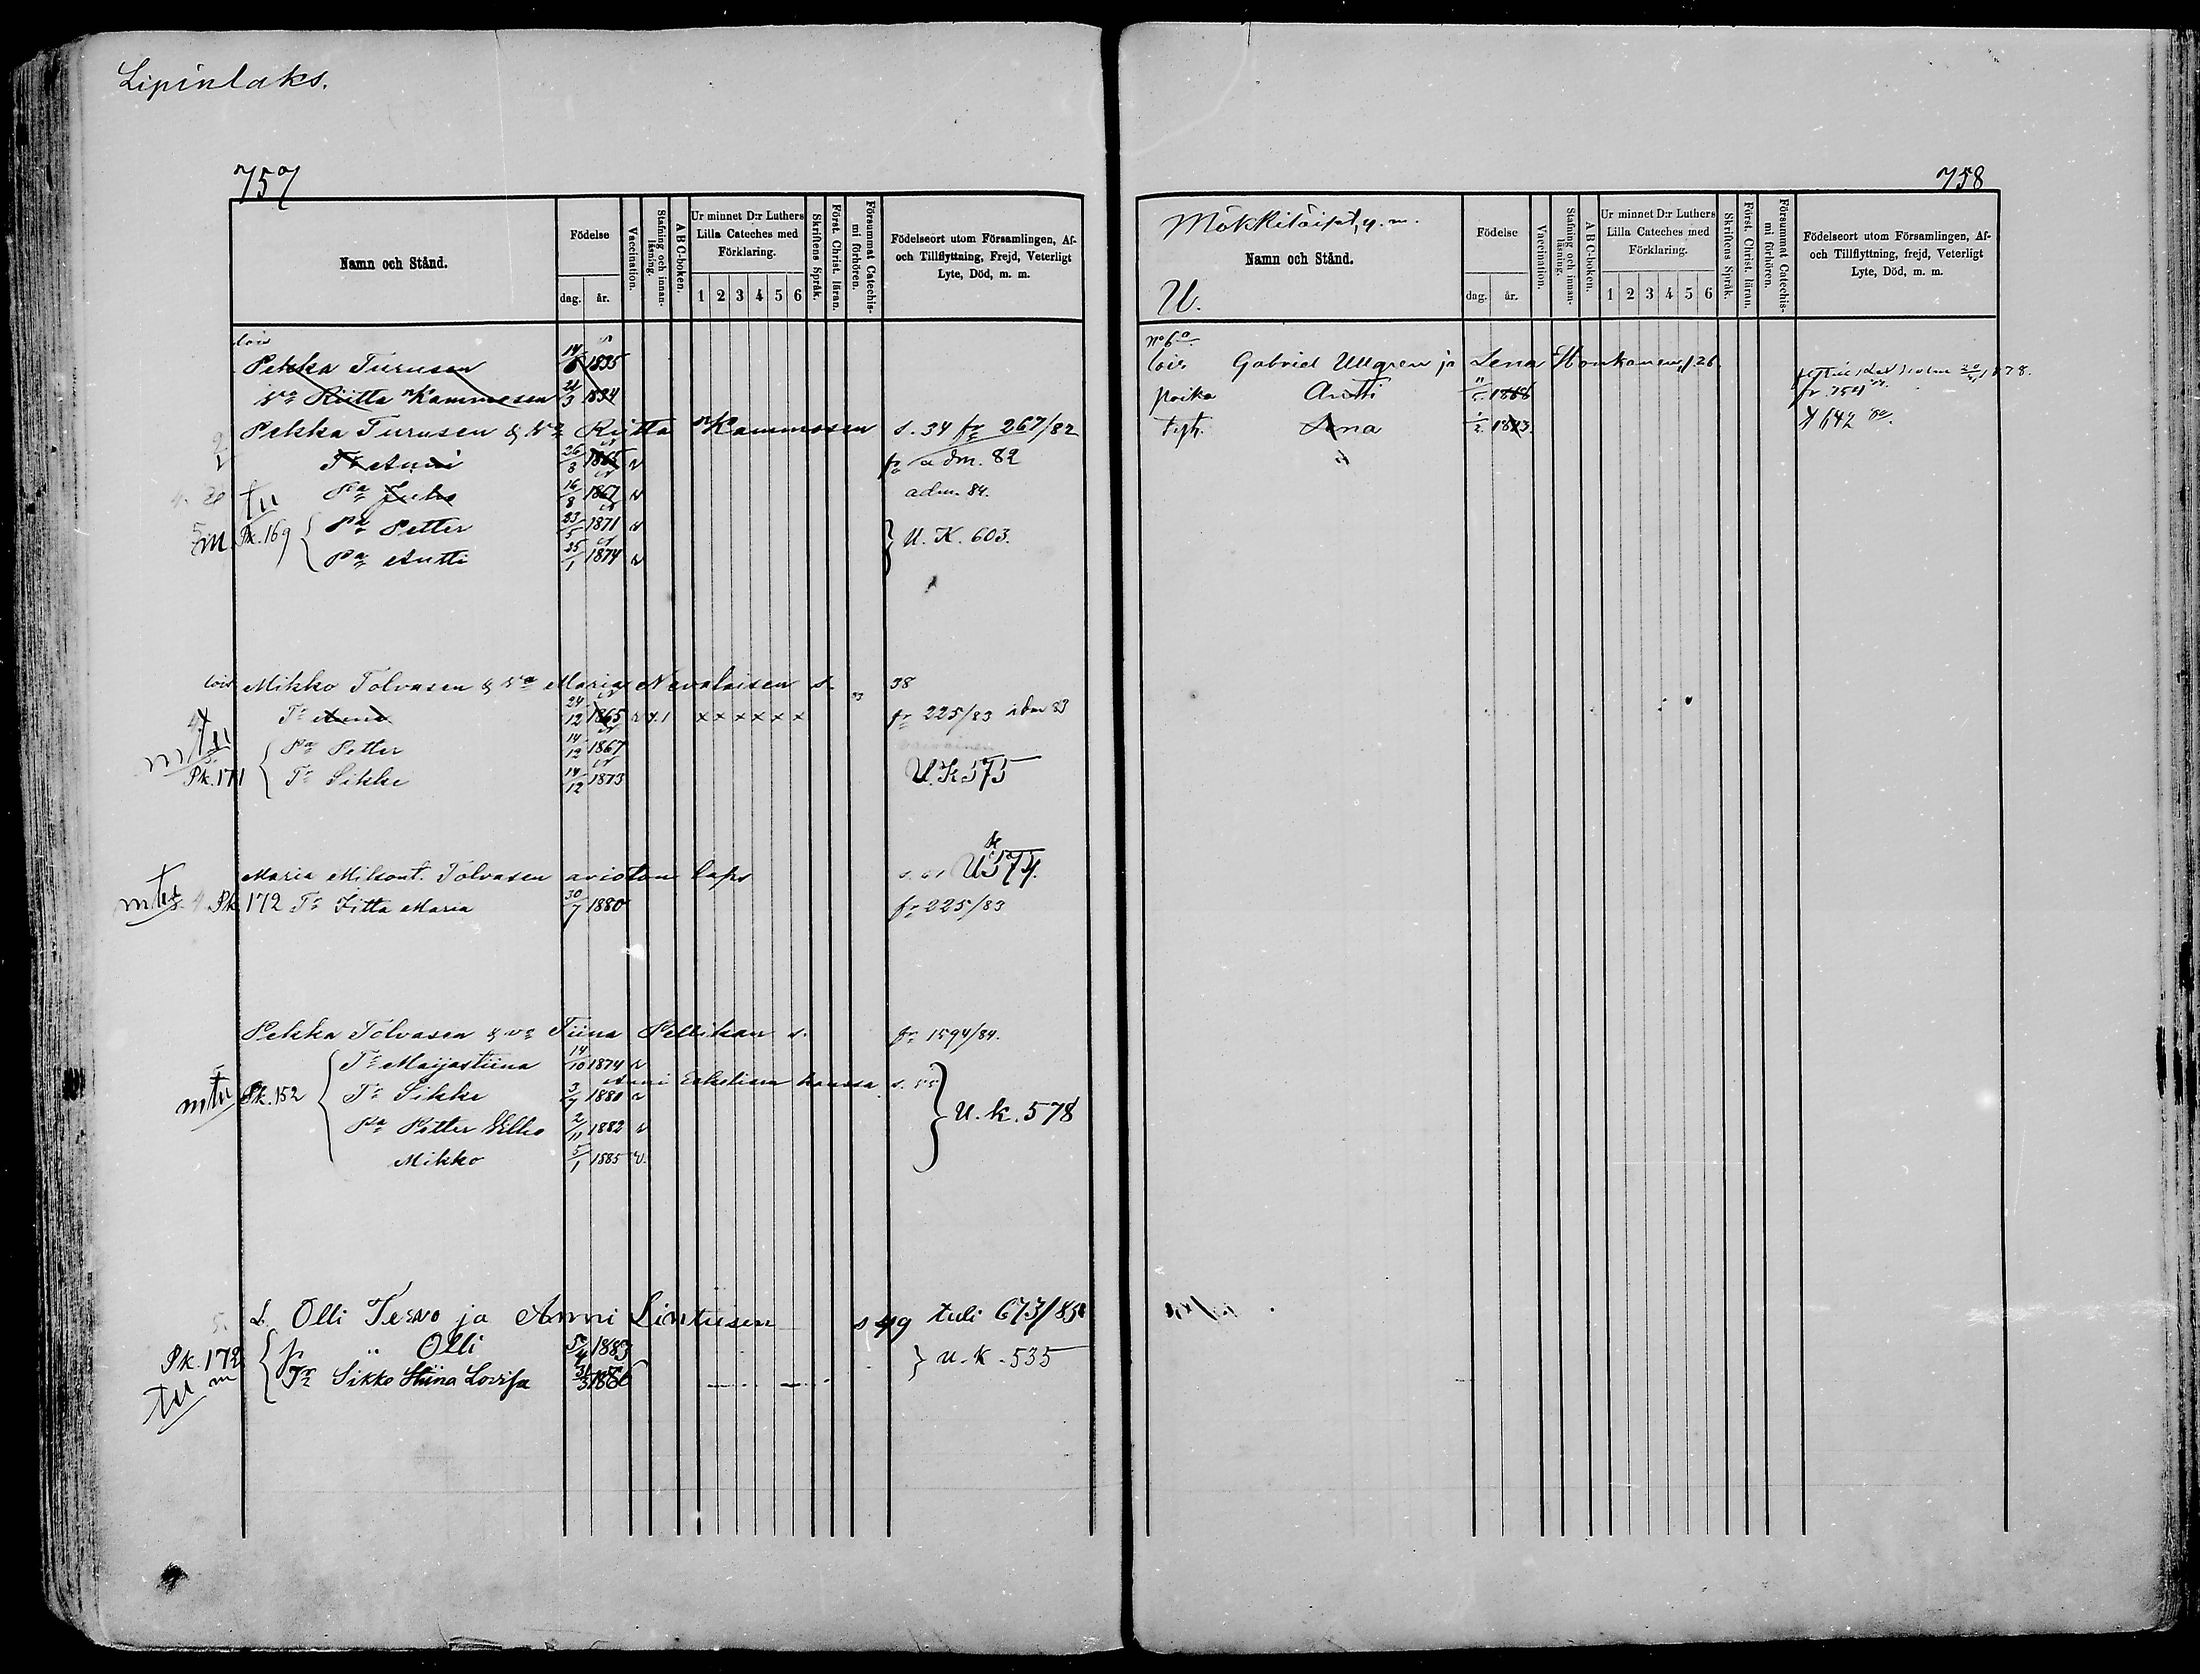 Lipinlaks.
757
Namn och Stånd.
Födelse
dag. år.
Vaccination.
Stafning och innanläsning.
A B C-boken.
Ur minnet D:r Luthers Lilla Cateches med Förklaring.
1 2 3 4 5 6
Skriftens Språk.
Först. Christ. läran.
Försummat Catechismi förhören.
Födelseort utom Församlingen, Af- och Tillflyttning, Frejd, Veterligt Lyte, Död, m. m.
lois
Pekka Turusen 14/6 1835
Va Riitta Kammosen 21/3 1834
Pekka Turusen & Va Riitta Kammosen s. 34 fr 267/82
Tr Anni 26/8 1865 v fr adm. 82
Pa Juho 16/8 1867 v adm. 84.
Pk. 169 Pa Petter 23/5 1871 v U. K. 603.
Pa Antti 25/1 1874 v
lois Mikko Tolvasen & Va Maria Nevalaisen s. 38
Tr Anna 24/12 1865 x x x x x x fr 225/83 adm 83
Pa Petter 14/12 1867
Pk. 171 Tr Sikke 14/12 1873 U. K 575
Maria Mikont. Tolvasen avioton laps U 574.
Pk 172 Tr Iitta Maria 30/7 1880 fr 225/83
Pekka Tolvasen & va Tiina Pellikan s. fr 1594/84.
Tr Maijastiina 14/10 1874 v
Pk. 152 Tr Sikke 3/7 1880 v U. K. 578
Pa Petter Vilho 2/11 1882 v
Mikko 5/1 1885 v.
L. Olli Tervo ja Anni Lintusen s 49 tuli 673/85
Pk. 172 p. " Olli 5/4 1883 U. K. 535
Tr Sikko Stiina Lovisa 31/3 1886
758
Mökkiläiset, y. m.
Namn och Stånd.
U.
Födelse
dag. år.
Vaccination.
Stafning och innanläsning.
A B C-boken.
Ur minnet D:r Luthers Lilla Cateches med Förklaring.
1 2 3 4 5 6
Skriftens Språk.
Först. Christ. läran.
Försummat Catechismi förhören.
Födelseort utom Församlingen, Af- och Tillflyttning, frejd, Veterligt Lyte, Död, m. m.
No 6 a
lois. Gabriel Ullgren ja Lena Honkanen, 126.
poika Antti 1868
tyt. Lena 1/2 1873. 642